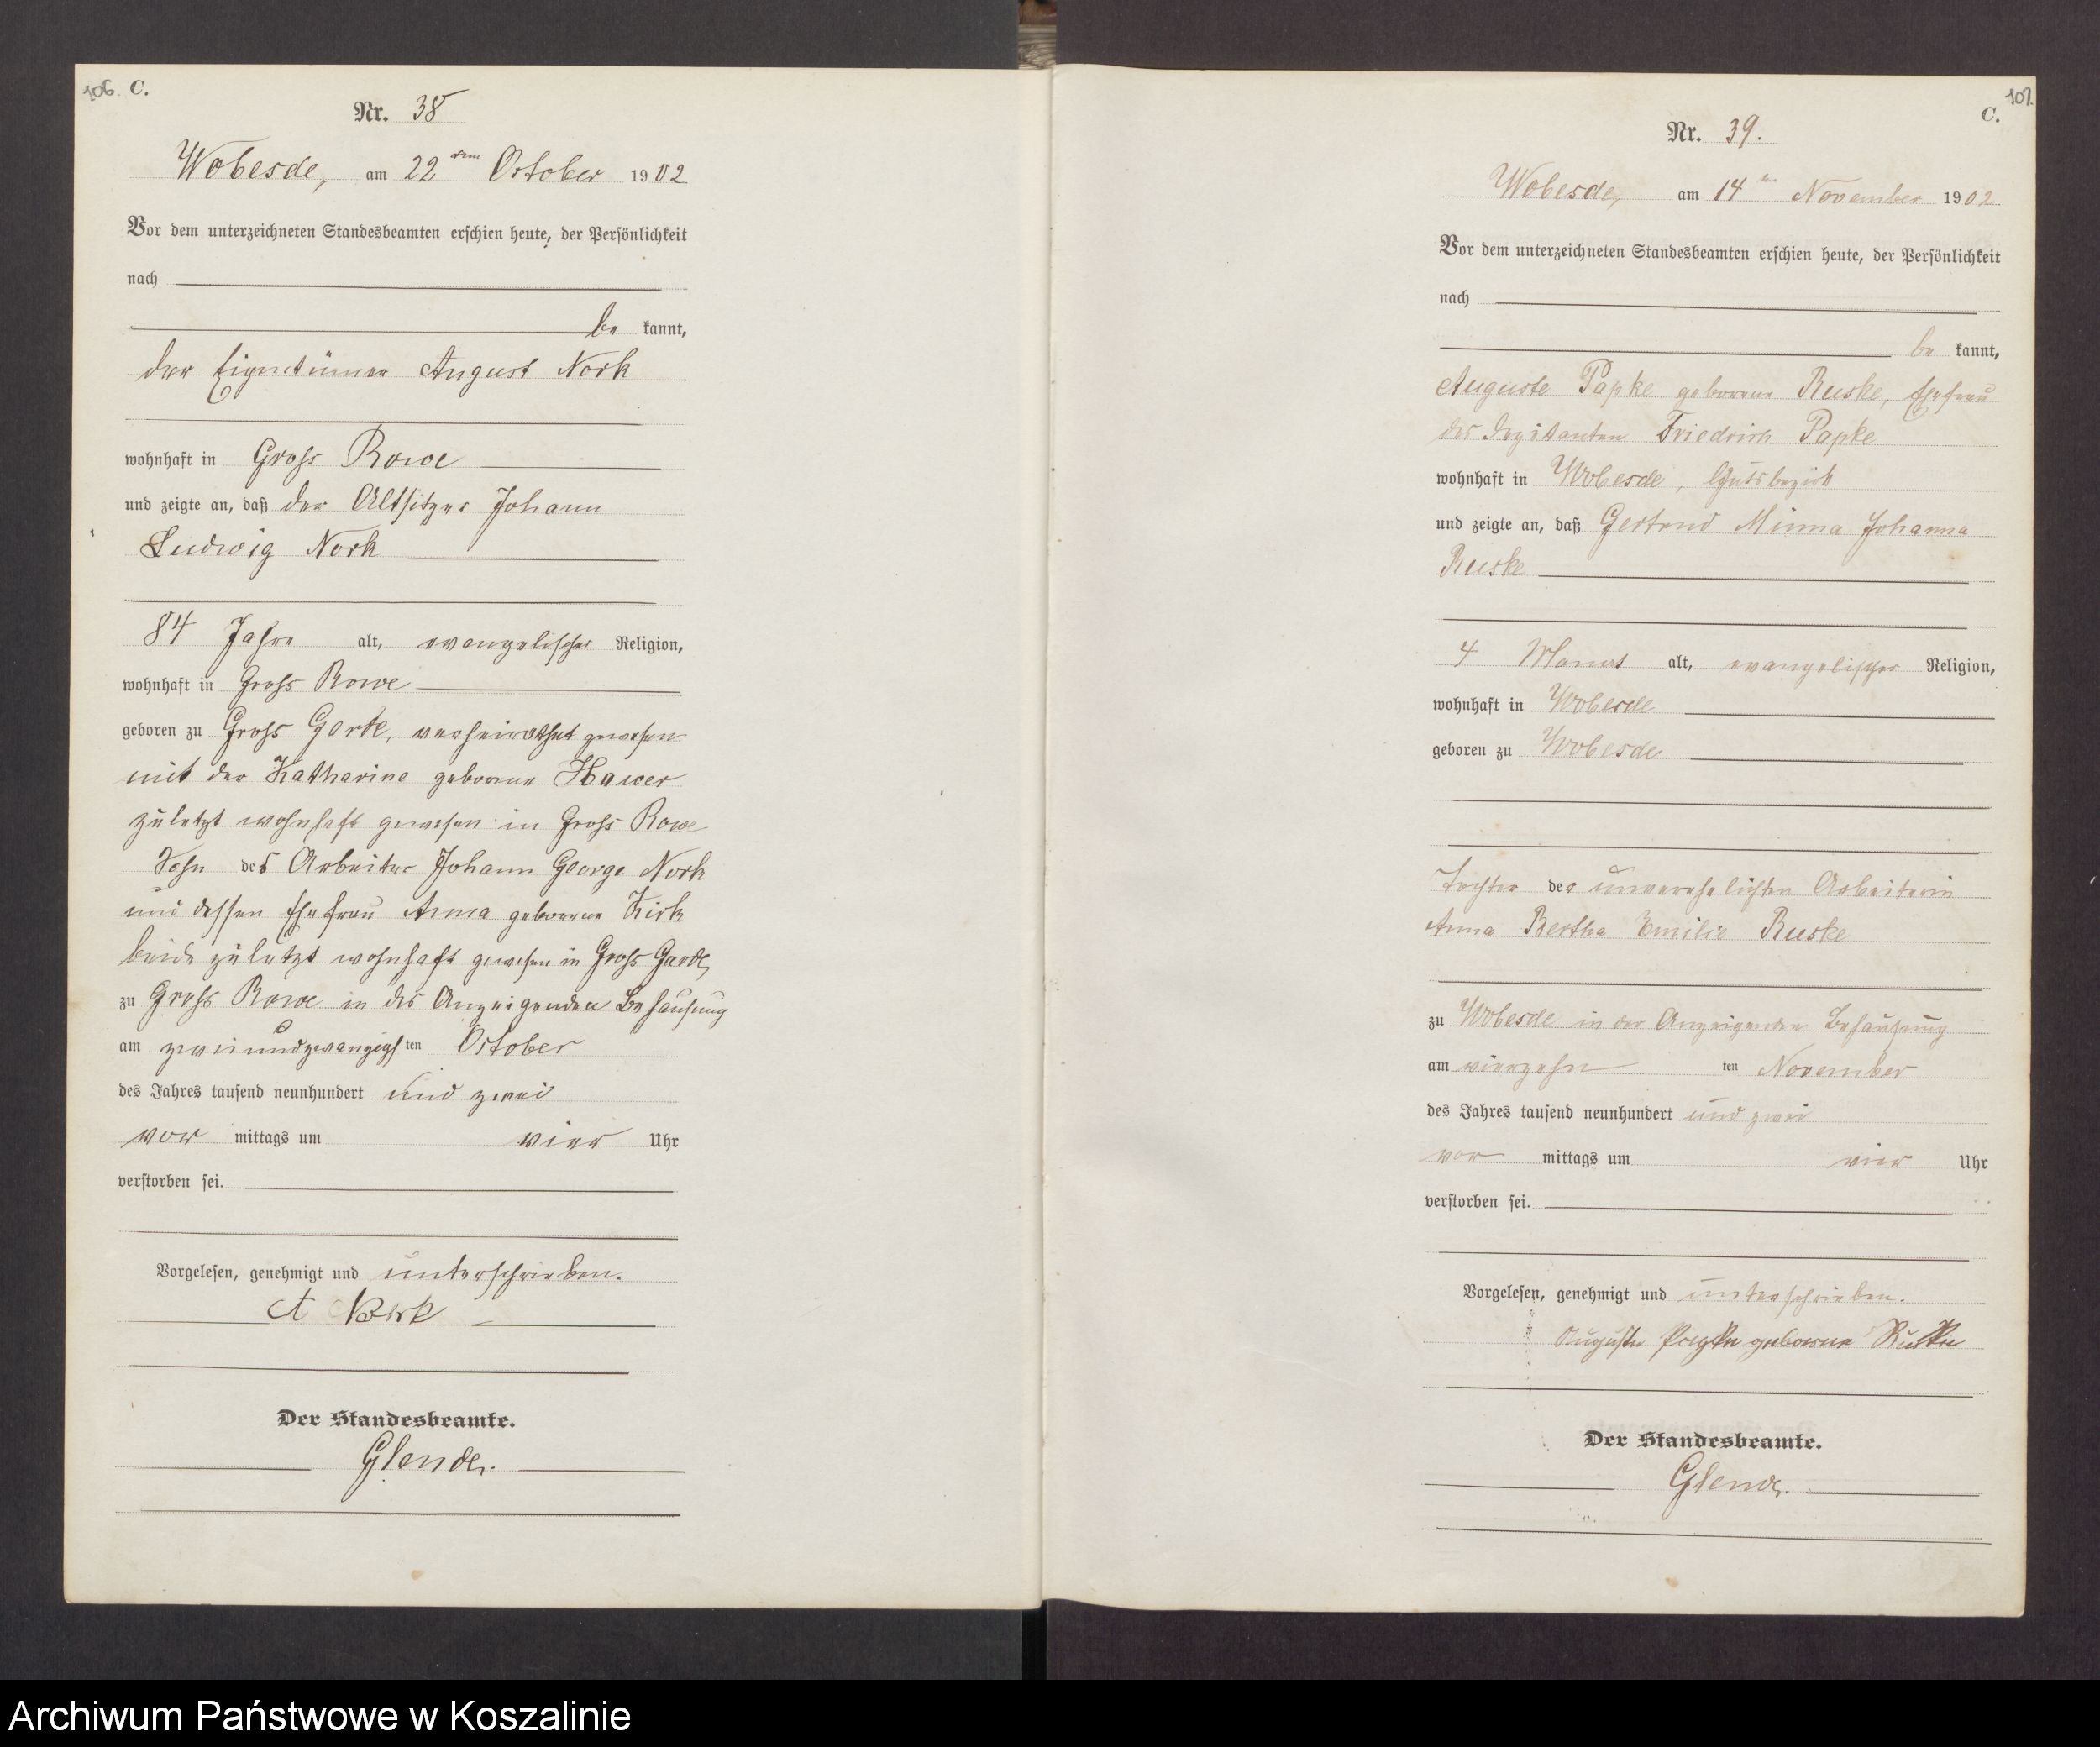 106. C.
Nr. 38
Wobesde, am 22ten October 1902
Vor dem unterzeichneten Standesbeamten erschien heute, der Persönlichkeit
nach
be kannt,
der Eigentümer August Nork
wohnhaft in Gross Rowe
und zeigte an, daß der Altsitzer Johann
Ludwig Nork
84 Jahre alt, evangelischer Religion,
wohnhaft in Gross Rowe
geboren zu Gross Garde, verheirathet gewesen
mit der Katharina geborene Hawer
zuletzt wohnhaft gewesen in Gross Rowe
Sohn des Arbeiter Johann George Nork
und dessen Ehefrau Anna geborene Kirk
beide zuletzt wohnhaft gewesen in Gross Garde,
zu Gross Rowe in des Anzeigenden Behausung
am zweiundzwanzigsten October
des Jahres tausend neunhundert und zwei
vor mittags um vier Uhr
verstorben sei.
Vorgelesen, genehmigt und unterschrieben.
A Nork
Der Standesbeamte.
Glende.
107.
C.
Nr. 39.
Wobesde, am 14ten November 1902
Vor dem unterzeichneten Standesbeamten erschien heute, der Persönlichkeit
nach
be kannt,
Auguste Papke geborene Ruske, Ehefrau
des Friedrich Papke
wohnhaft in Wobesde, Gutsbezirk
und zeigte an, daß Gertrud Minna Johanna
Ruske
4 Monat alt, evangelischer Religion,
wohnhaft in Wobesde
geboren zu Wobesde
Tochter der unverehelichten Arbeiterin
Anna Bertha Emilie Ruske
zu Wobesde in der Anzeigenden Behausung
am vierzehn ten November
des Jahres tausend neunhundert und zwei
vor mittags um vier Uhr
verstorben sei.
Vorgelesen, genehmigt und unterschrieben.
Auguste Papke geborene Ruske
Der Standesbeamte.
Glende.
Archiwum Państwowe w Koszalinie